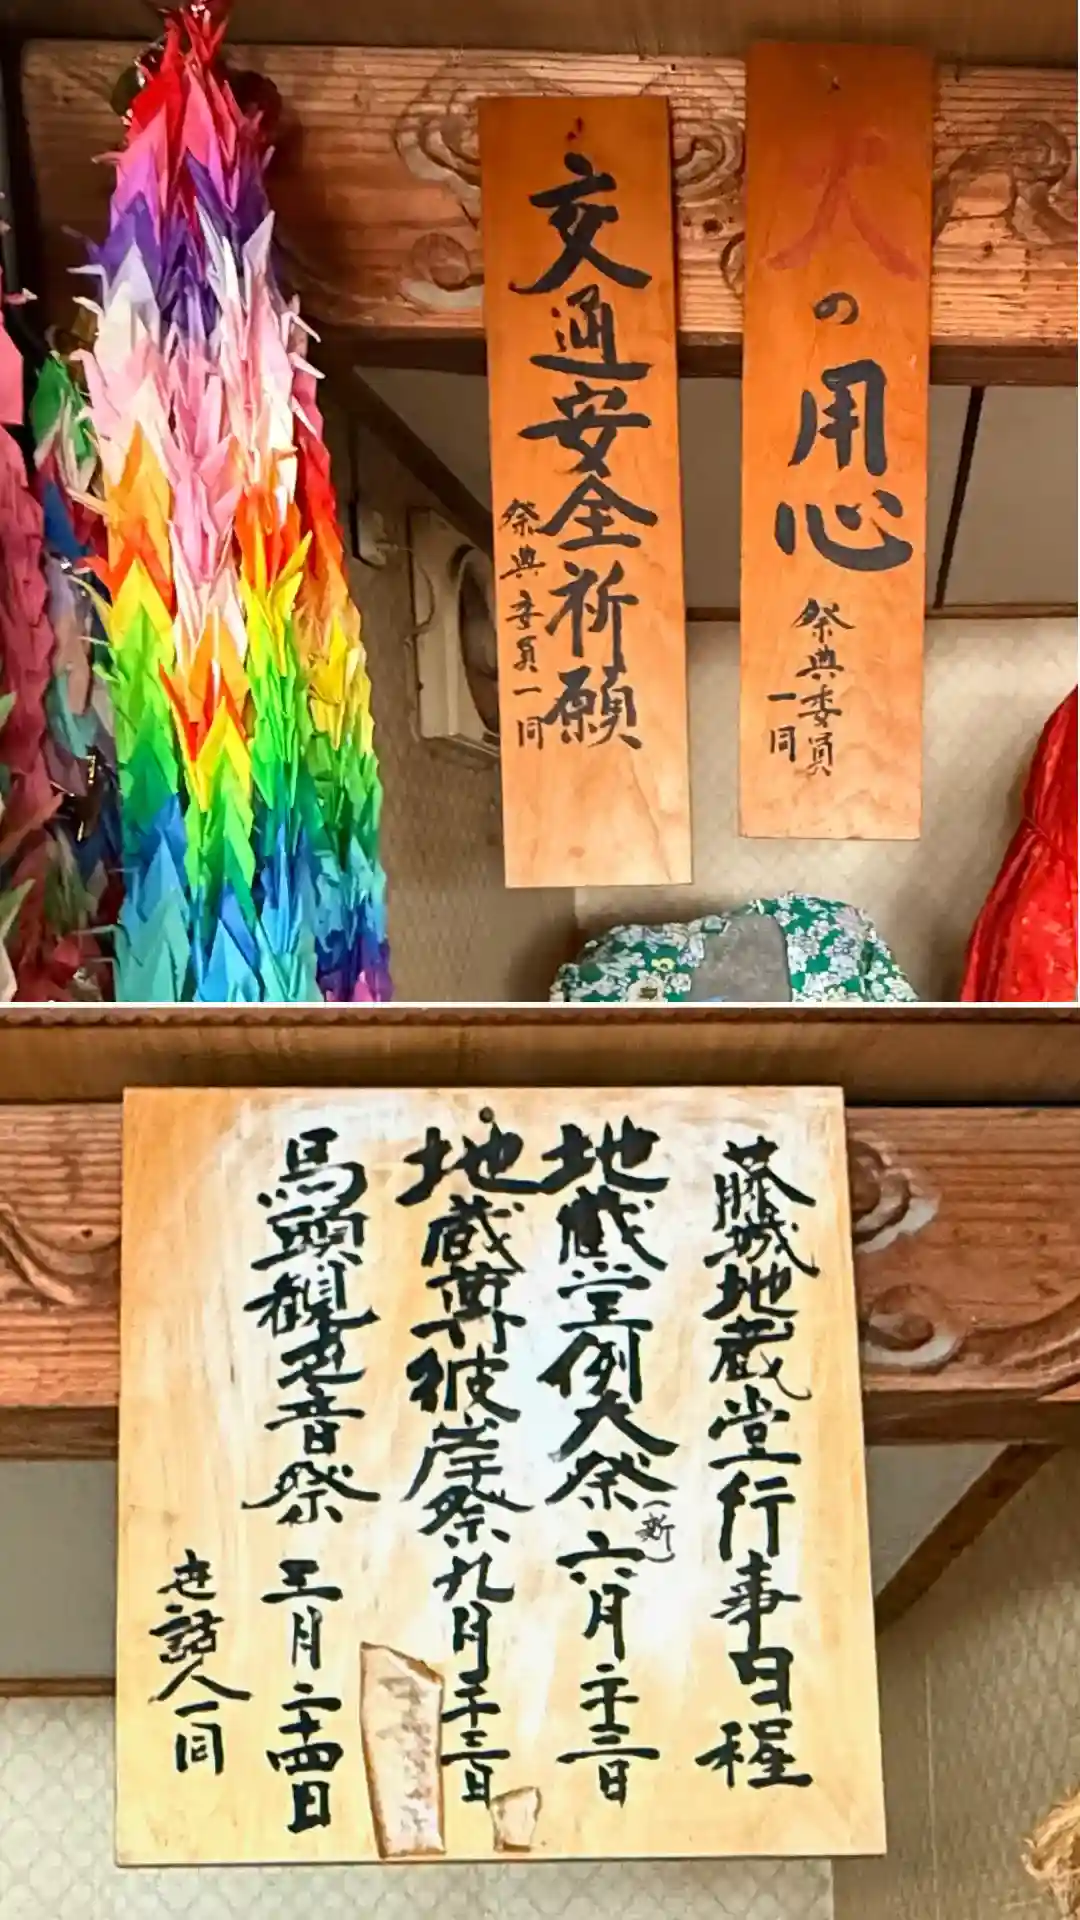 火の用心
祭典委員
一同
交通安全祈願
祭典委員一同
藤城地蔵堂行事日程
地蔵堂例大祭(新)六月二十三日
地蔵尊彼岸祭九月二十三日
馬頭観世音祭三月二十四日
世話人一同